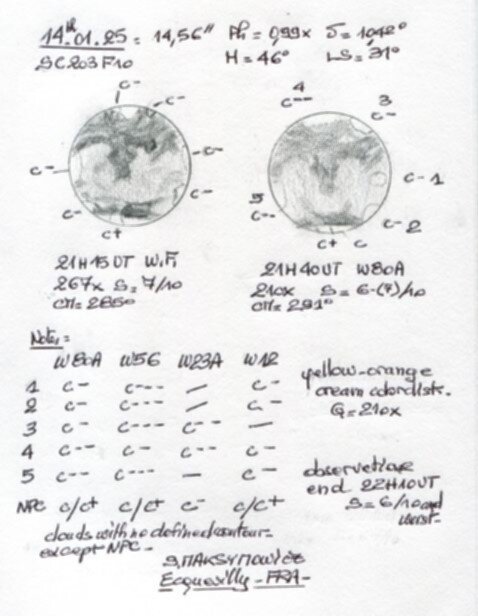 14.01.25 = 14,56" Ph = 0,99x
SC203F10 H = 46° LS = 31°
C- C-
C-
C-
C-
C-
C+
4
C--
3
C-
C- 1
C- 2
5
C--
C+ C
21H15UT W.F. 21H40UT W80A
267x S = 7/10 210x S = 6-(7)/10
CM = 285° CM = 291°
Notes =
W80A W56 W23A W12
1 C- C--- / C-
2 C- C--- / C-
3 C- C--- C-- —
4 C-- C- C- C-
5 C-- C--- — C-
NPC C/C+ C/C+ C- C/C+
yellow-orange
cream
G = 210x
end 22H10UT
S = 6/10 and
clouds with no defined contour-
except NPC-
Ecquevilly - FRA -